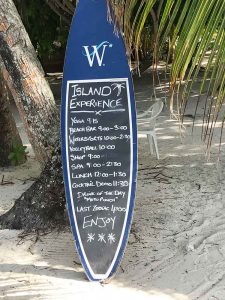 W
ISLAND
EXPERIENCE
YOGA 9:15
BEACH BAR 9:00-3:00
WATERSPORTS 10:00-2:30
VOLLEYBALL 10:00
SHOP 9:00
SPA 9:00 - 2:30
LUNCH 12:00 - 1:30
COCKTAIL DEMO 11:30
DRINK OF THE DAY
PUNCH"
LAST ZODIAC 4:00
ENJOY